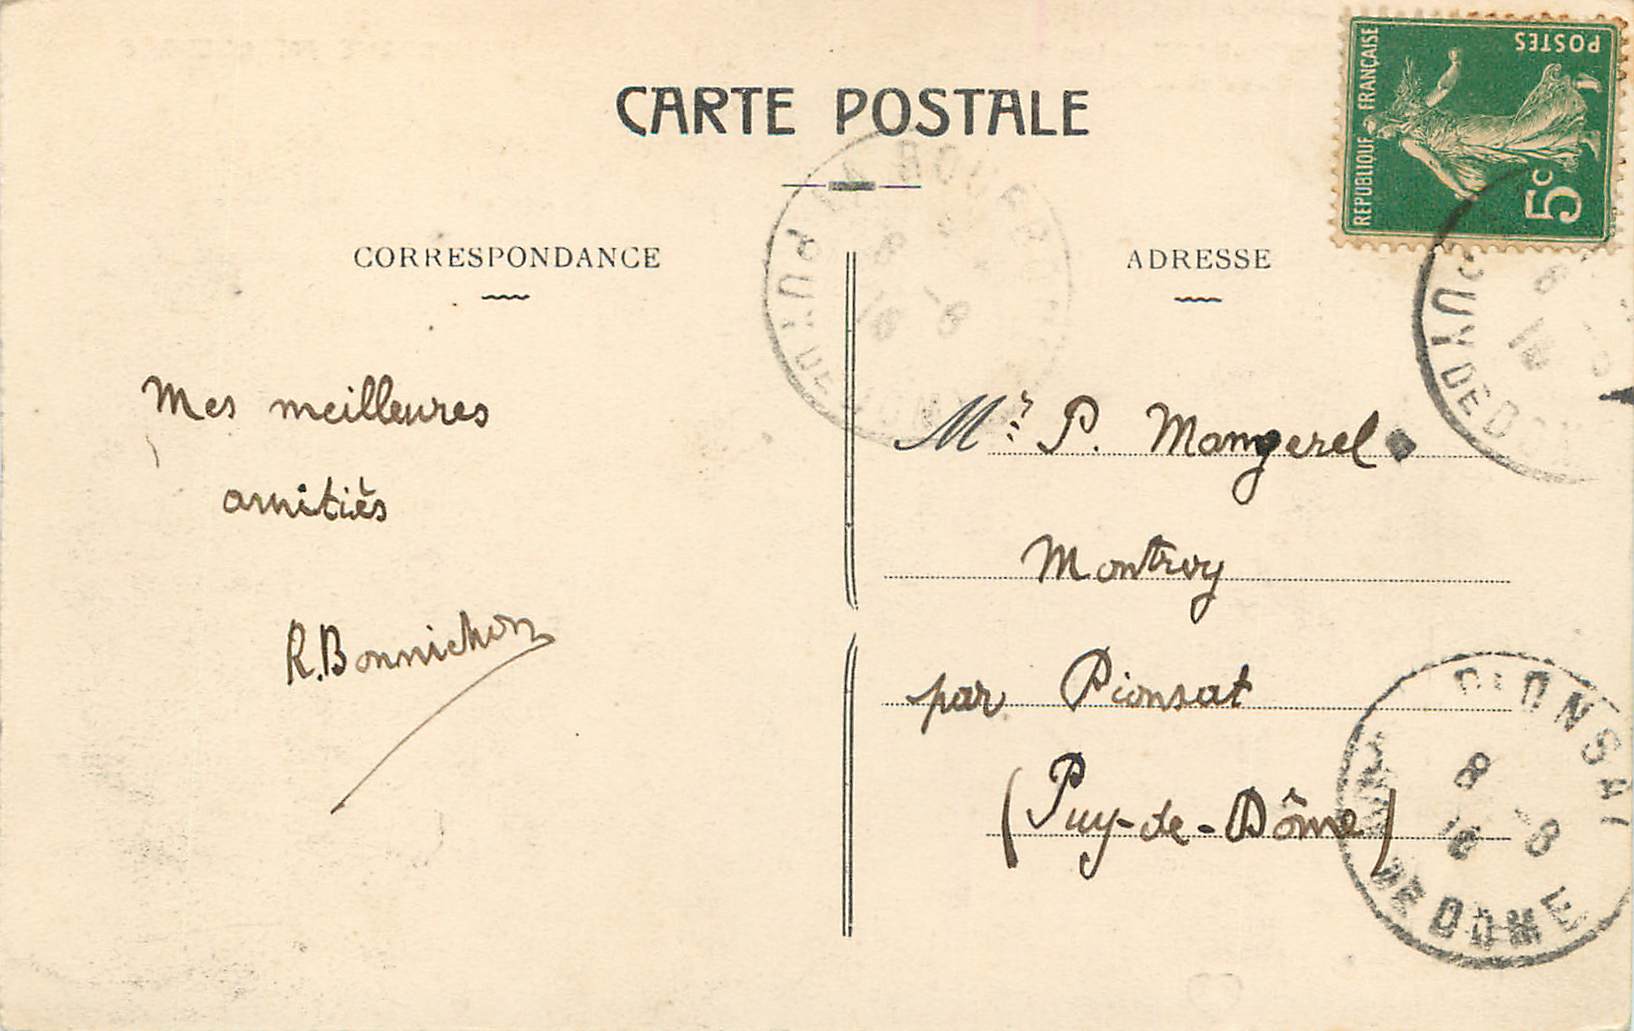 CARTE POSTALE
CORRESPONDANCE
ADRESSE
REPUBLIQUE FRANÇAISE
POSTES
5c
LA BOURBOULE
PUY DE DOME
8 -8
16
PUY DE DOM
8
16
Mes meilleures
amitiés
R. Bonnichon
Mr P. Mangerel
Montroy
par Pionsat
(Puy-de-Dôme)
PIONSAT
8 -8
16
PUY DE DOME